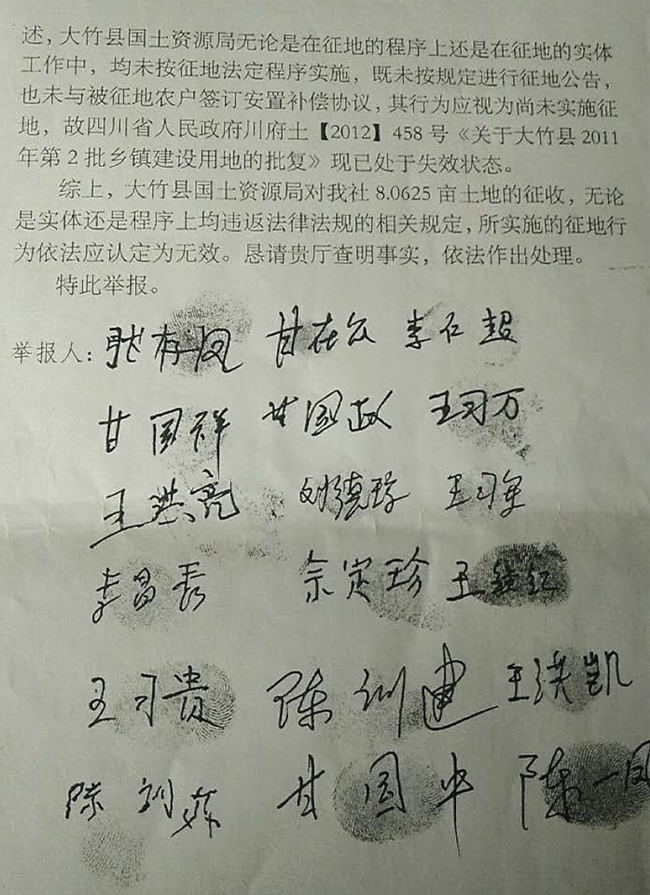 述，大竹县国土资源局无论是在征地的程序上还是在征地的实体
工作中，均未按征地法定程序实施，既未按规定进行征地公告，
也未与被征地农户签订安置补偿协议，其行为应视为尚未实施征
地，故四川省人民政府川府土【2012】458号《关于大竹县2011
年第2批乡镇建设用地的批复》现已处于失效状态。
综上，大竹县国土资源局对我社8.0625亩土地的征收，无论
是实体还是程序上均违返法律法规的相关规定，所实施的征地行
为依法应认定为无效。恳请贵厅查明事实，依法作出处理。
特此举报。
举报人：甘在 李石超
甘国祥 甘国政 王习万
王洪亮 刘德珍 王习
李昌秀 余定珍 王
王习贵 陈训建 王洪凯
陈 甘国中 陈一凤